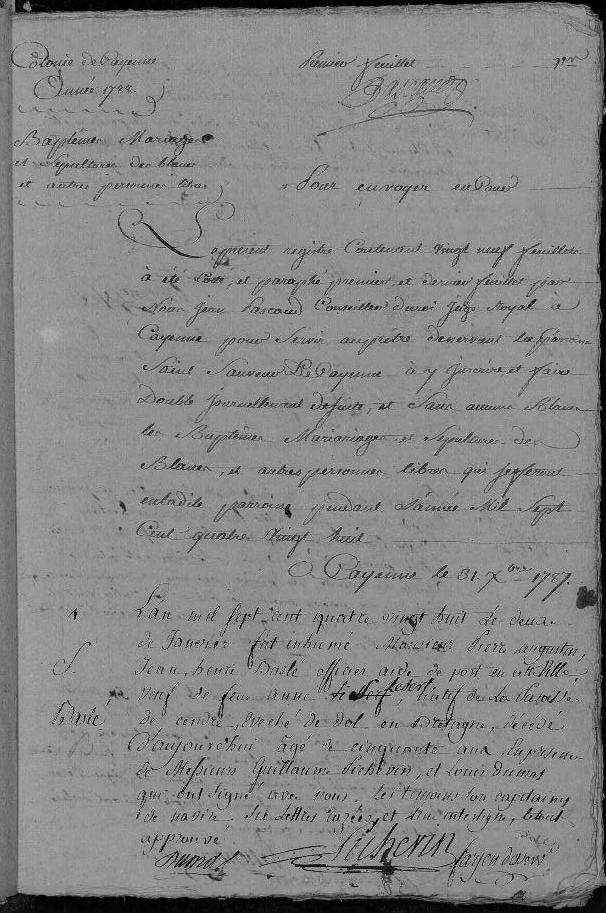 Colonie de Cayenne
Année 1788.
Premier feuillet
1er
Baptêmes Mariages
et Sépultures des blancs
et autres personnes libres
Pour envoyer en
Le présent registre Contenant Vingt neuf feuillets
à été Coté, et paraphé premier, et dernier feuillet par
Nous Jean Pascaud Conseiller du roi Juge Royal a
Cayenne pour Servir au prêtre desservant la paroisse
Saint Sauveur De Cayenne à y Inscrire et faire
Double Journellement desuite, et Sans aucuns Blancs
les Baptêmes Mariariages et Sepultures des
Blancs, et autres personnes libres qui se feront
en ladite paroisse pendant L'année Mil Sept
Cent quatre Vingt huit
à Cayenne le 31. Xbre 1787.
1
L'an mil sept cent quatre vingt huit le deux
de Janvier fut inhumé Monsieur Pierre, augustin,
S
Jean, henri Baslé officier aide de port en cette Ville
veuf de feue anne le Serf, natif de la Paroisse
Baslé
de cendre, Evêché de dol en Bretagne, décédé
d'aujourd'hui âgé de cinquante ans, En présence
de Messieurs Guillaume Picherin, et Louis Dumas
qui ont signé avec nous. Les temoins son capitaines
de navire. Six lettres razées, et une interligne, le tout
approuvé
Dumas
Picherin